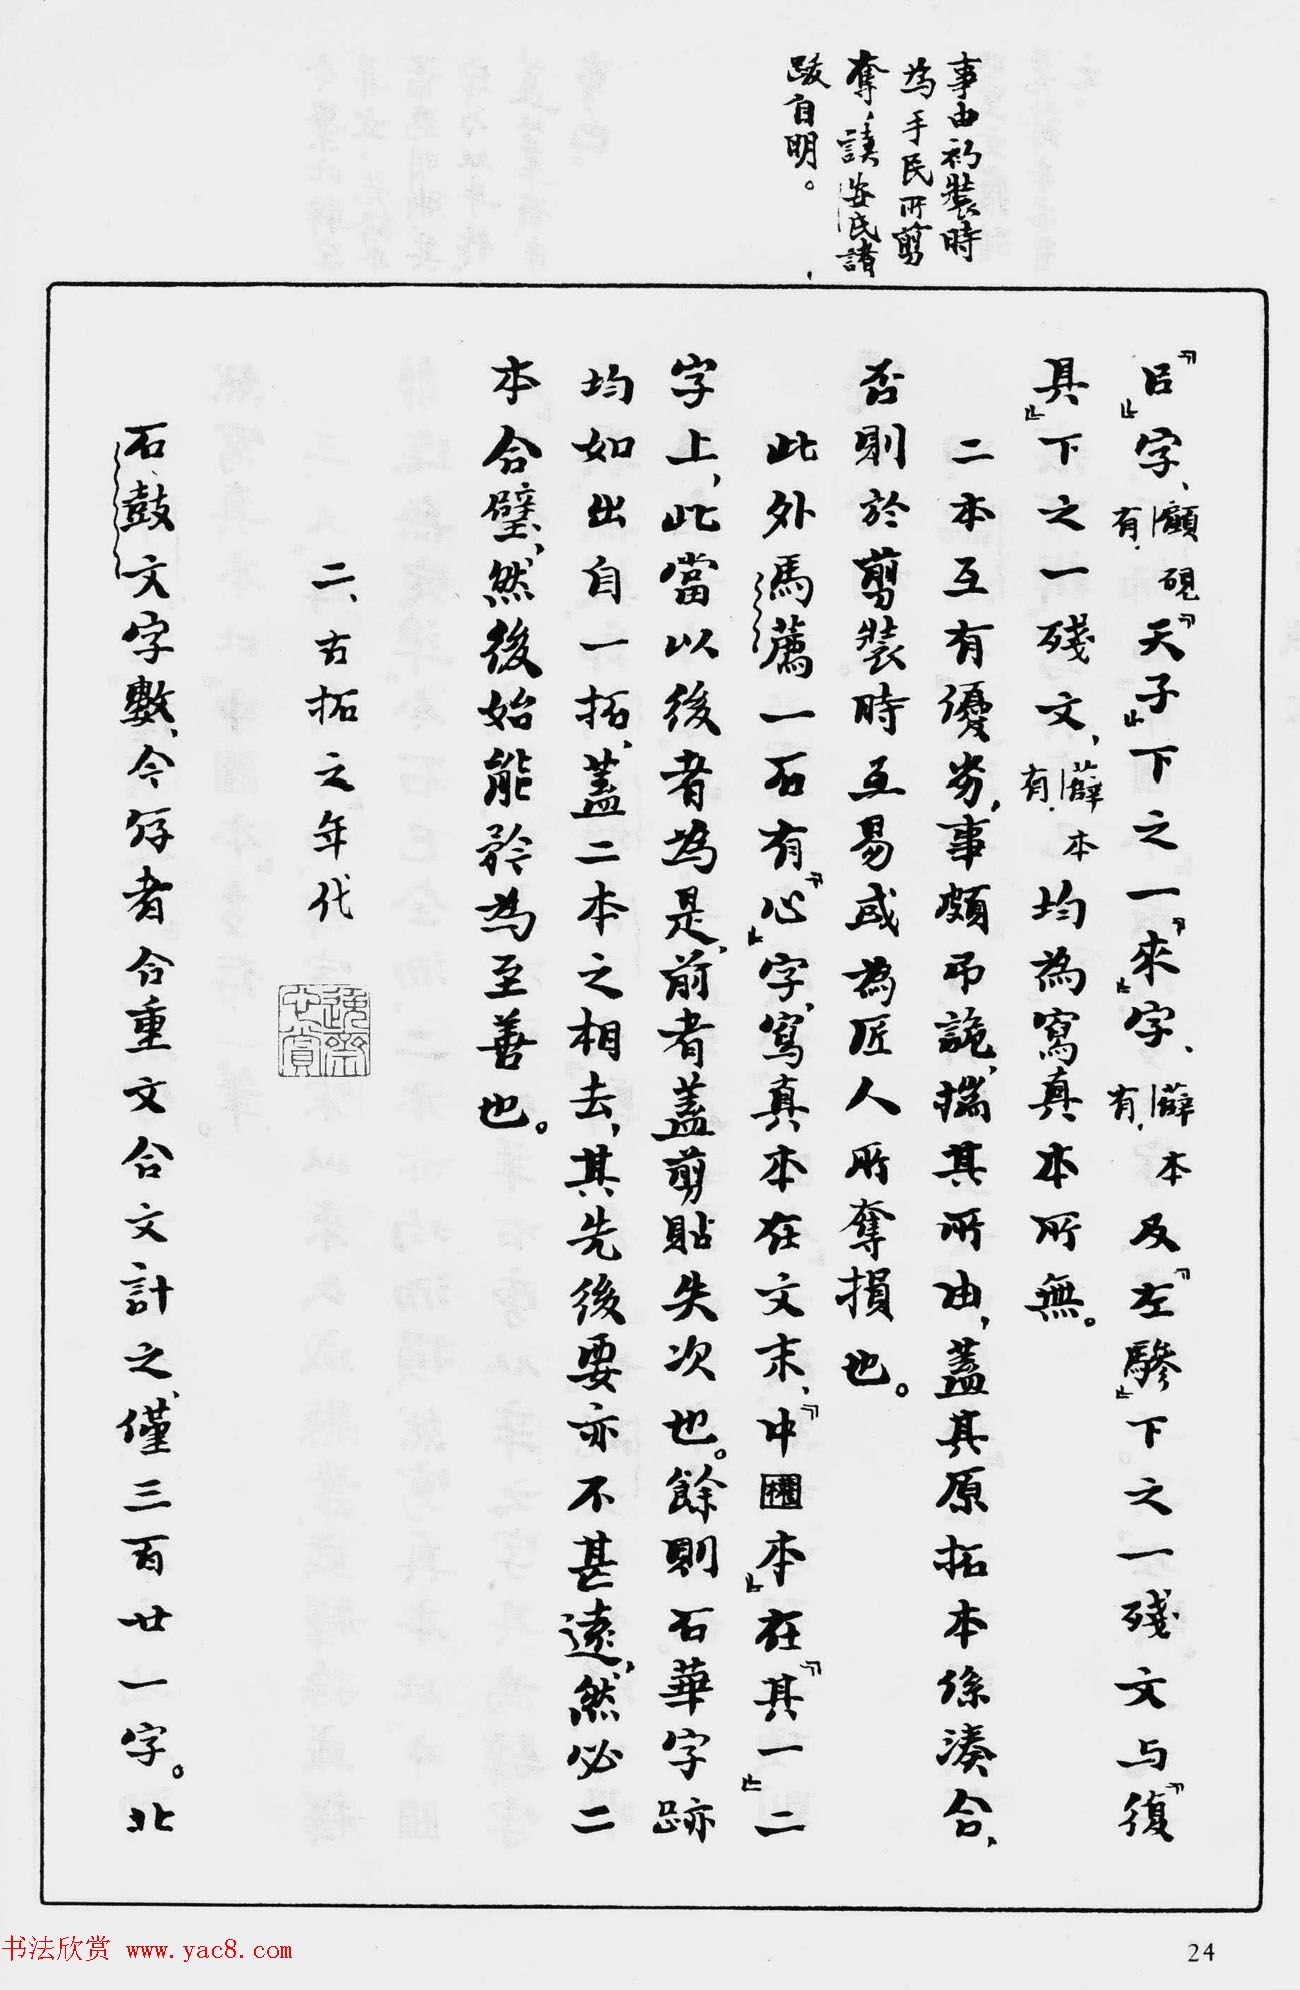 事由初裝時
為手民所剪
奪，讀安氏諸
跋自明。
『㠯』字、顧硯有.『天子』下之一『來』字、薛本有.及『左驂』下之一殘文与『復
具』下之一殘文，薛本有.均為寫真本所無。
二本互有優劣，事頗弔詭，揣其所由，蓋其原拓本係湊合，
否則於剪裝時互易或為匠人所奪損也。
此外馬薦一石有『心』字，寫真本在文末，『中權本』在『其一』二
字上，此當以後者為是，前者蓋剪貼失次也。餘則石華字跡
均如出自一拓，蓋二本之相去，其先後要亦不甚遠，然必二
本合璧，然後始能矜為至善也。
二、古拓之年代
石鼓文字數，今存者合重文合文計之，僅三百廿一字。北
书法欣赏 www.yac8.com
24